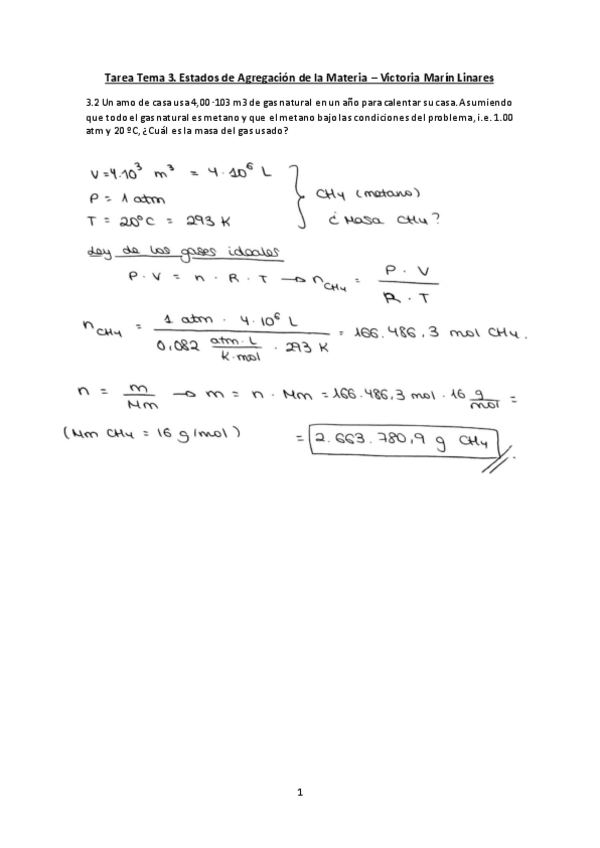 Tarea Tema 3. Estados de Agregación de la Materia – Victoria Marín Linares
3.2 Un amo de casa usa 4,00 ·103 m3 de gas natural en un año para calentar su casa. Asumiendo
que todo el gas natural es metano y que el metano bajo las condiciones del problema, i.e. 1.00
atm y 20 ºC, ¿Cuál es la masa del gas usado?
V = 4·10³ m³ = 4·10⁶ L
P = 1 atm
T = 20°C = 293 K
CH4 (metano)
¿Masa CH4?
Ley de los gases ideales
P · V = n · R · T → nCH4 = P · V / R · T
nCH4 = 1 atm · 4·10⁶ L / 0,082 atm·L / K·mol · 293 K = 166.486,3 mol CH4.
n = m / Mm → m = n · Mm = 166.486,3 mol · 16 g / mol =
(Mm CH4 = 16 g/mol) = 2.663.780,9 g CH4
1